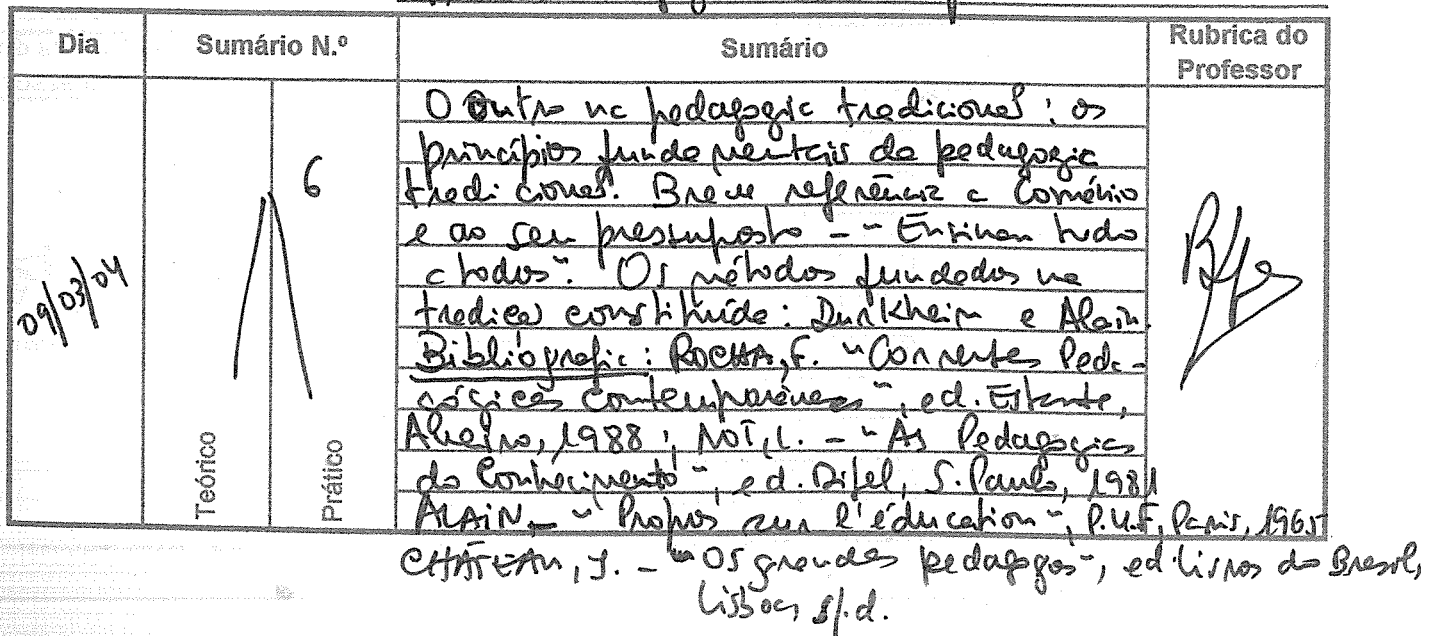 Dia Sumário N.º Sumário Rubrica do Professor
09/03/04
6
Teórico
Prático
O Outro na pedagogia tradicional: os
princípios fundamentais da pedagogia
tradicional. Breve referência a Coménio
e ao seu pressuposto - "Ensinar tudo
a todos". Os métodos fundados na
tradição constituída: Durkheim e Alain.
Bibliografia: ROCHA, F. "Correntes Peda-
gógicas Contemporâneas", ed. Estante,
Aveiro, 1988; NOT, L. - "As Pedagogias
do Conhecimento", ed. Difel, S. Paulo, 1981
ALAIN - "Propos sur l'éducation", P.U.F, Paris, 1965
CHÂTEAU, J. - "Os grandes pedagogos", ed Livros do Brasil,
Lisboa, s/.d.